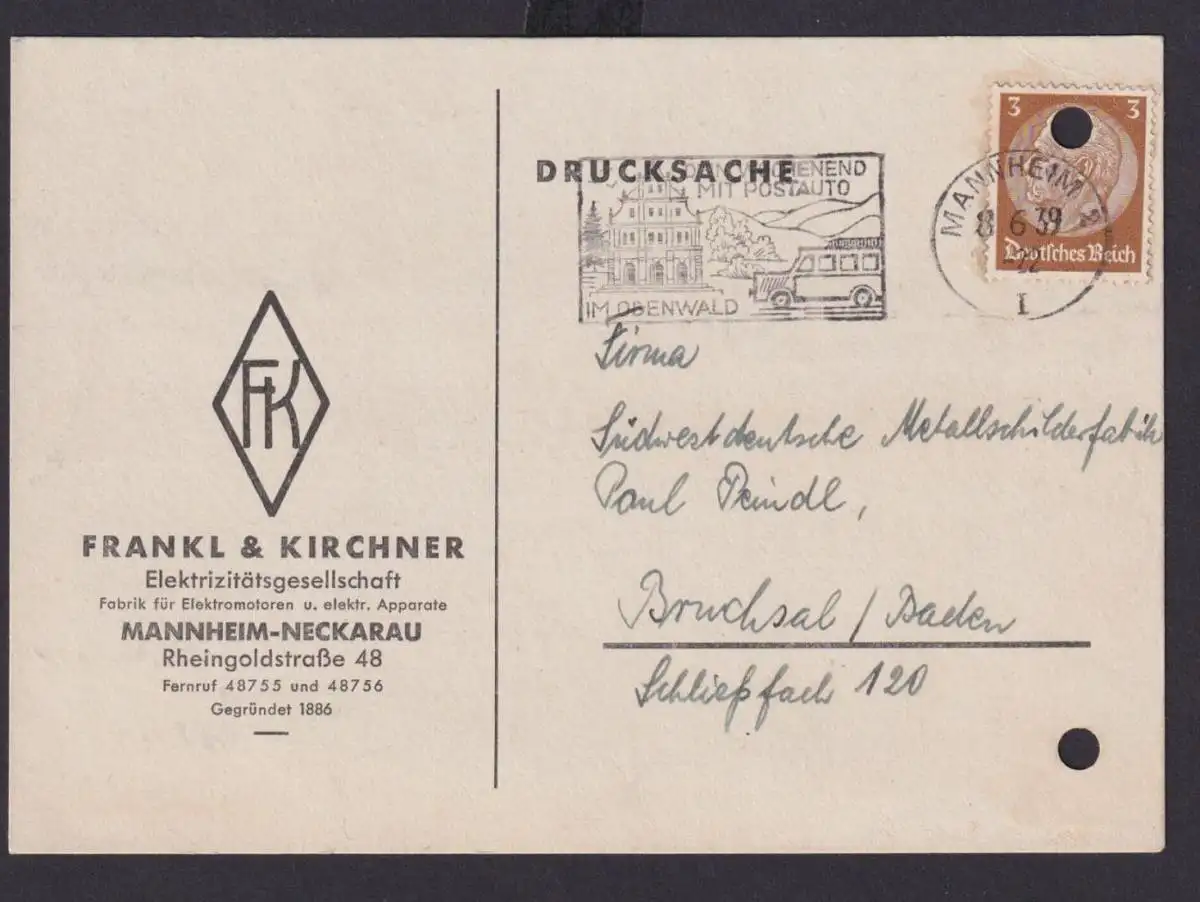 FK
FRANKL & KIRCHNER
Elektrizitätsgesellschaft
Fabrik für Elektromotoren u. elektr. Apparate
MANNHEIM-NECKARAU
Rheingoldstraße 48
Fernruf 48755 und 48756
Gegründet 1886
DRUCKSACHE
MIT POSTAUTO
IM ODENWALD
MANNHEIM 2
8 6 39
I
3 3
Deutsches Reich
Firma
Südwestdeutsche Metallschilderfabrik
Paul Peindl,
Bruchsal / Baden
Schließfach 120